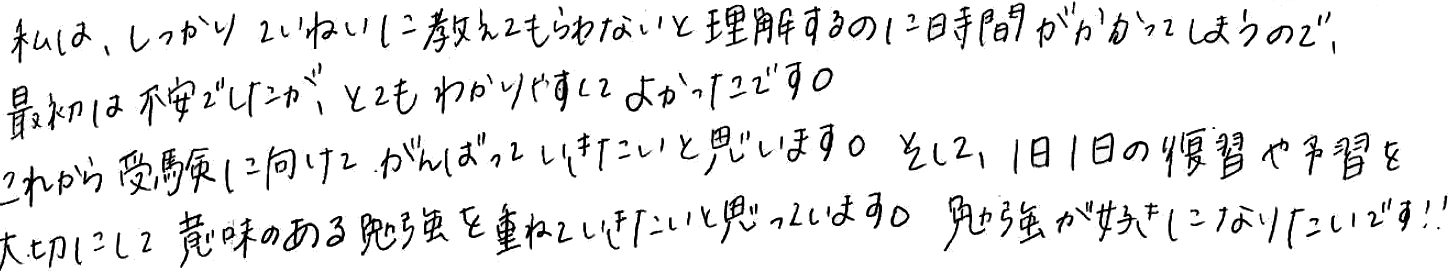 私は、しっかりていねいに教えてもらわないと理解するのに時間がかかってしまうので、
最初は不安でしたが、とてもわかりやすくてよかったです。
これから受験に向けてがんばっていきたいと思います。そして、1日1日の復習や予習を
大切にして意味のある勉強を重ねていきたいと思っています。勉強が好きになりたいです!!